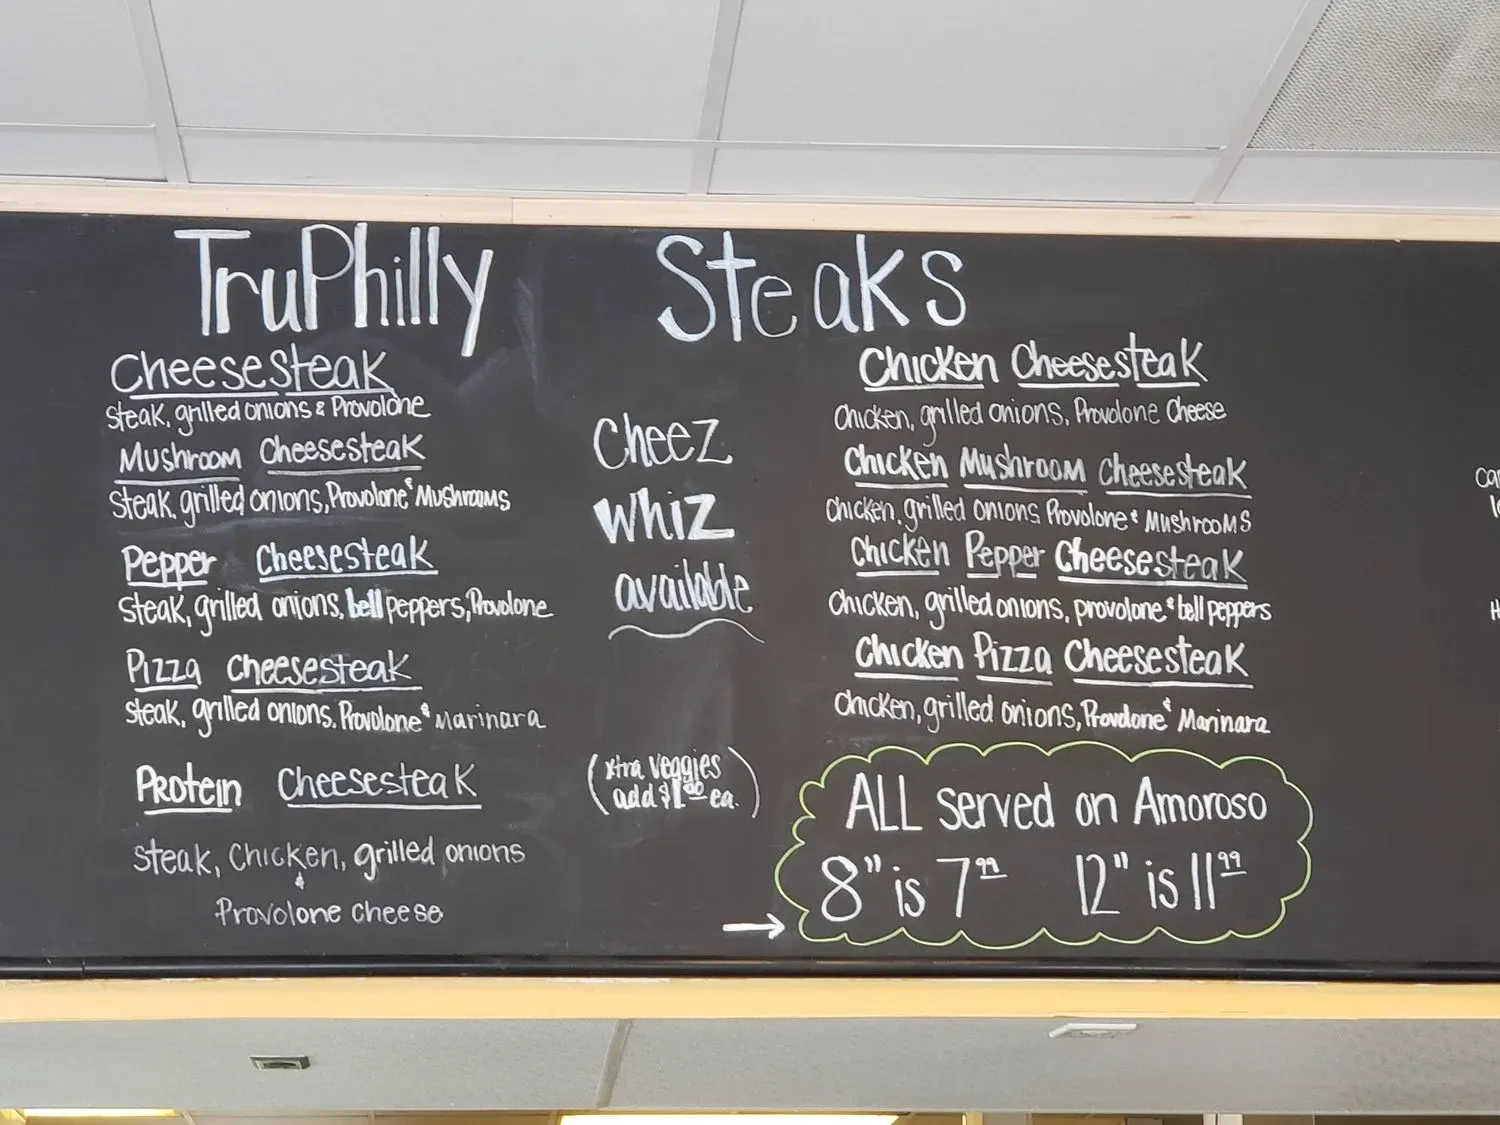 TruPhilly Steaks
Cheesesteak
Steak, grilled onions & Provolone
Mushroom Cheesesteak
Steak, grilled onions, Provolone & Mushrooms
Pepper Cheesesteak
Steak, grilled onions, bell peppers, Provolone
Pizza Cheesesteak
Steak, grilled onions, Provolone & Marinara
Protein Cheesesteak
Steak, Chicken, grilled onions
&
Provolone cheese
Cheez
Whiz
available
(xtra veggies
add $1.00 ea.)
Chicken Cheesesteak
Chicken, grilled onions, Provolone Cheese
Chicken Mushroom Cheesesteak
Chicken, grilled onions Provolone & Mushrooms
Chicken Pepper Cheesesteak
Chicken, grilled onions, provolone & bell peppers
Chicken Pizza Cheesesteak
Chicken, grilled onions, Provolone & Marinara
ALL served on Amoroso
8" is 7.99 12" is 11.99